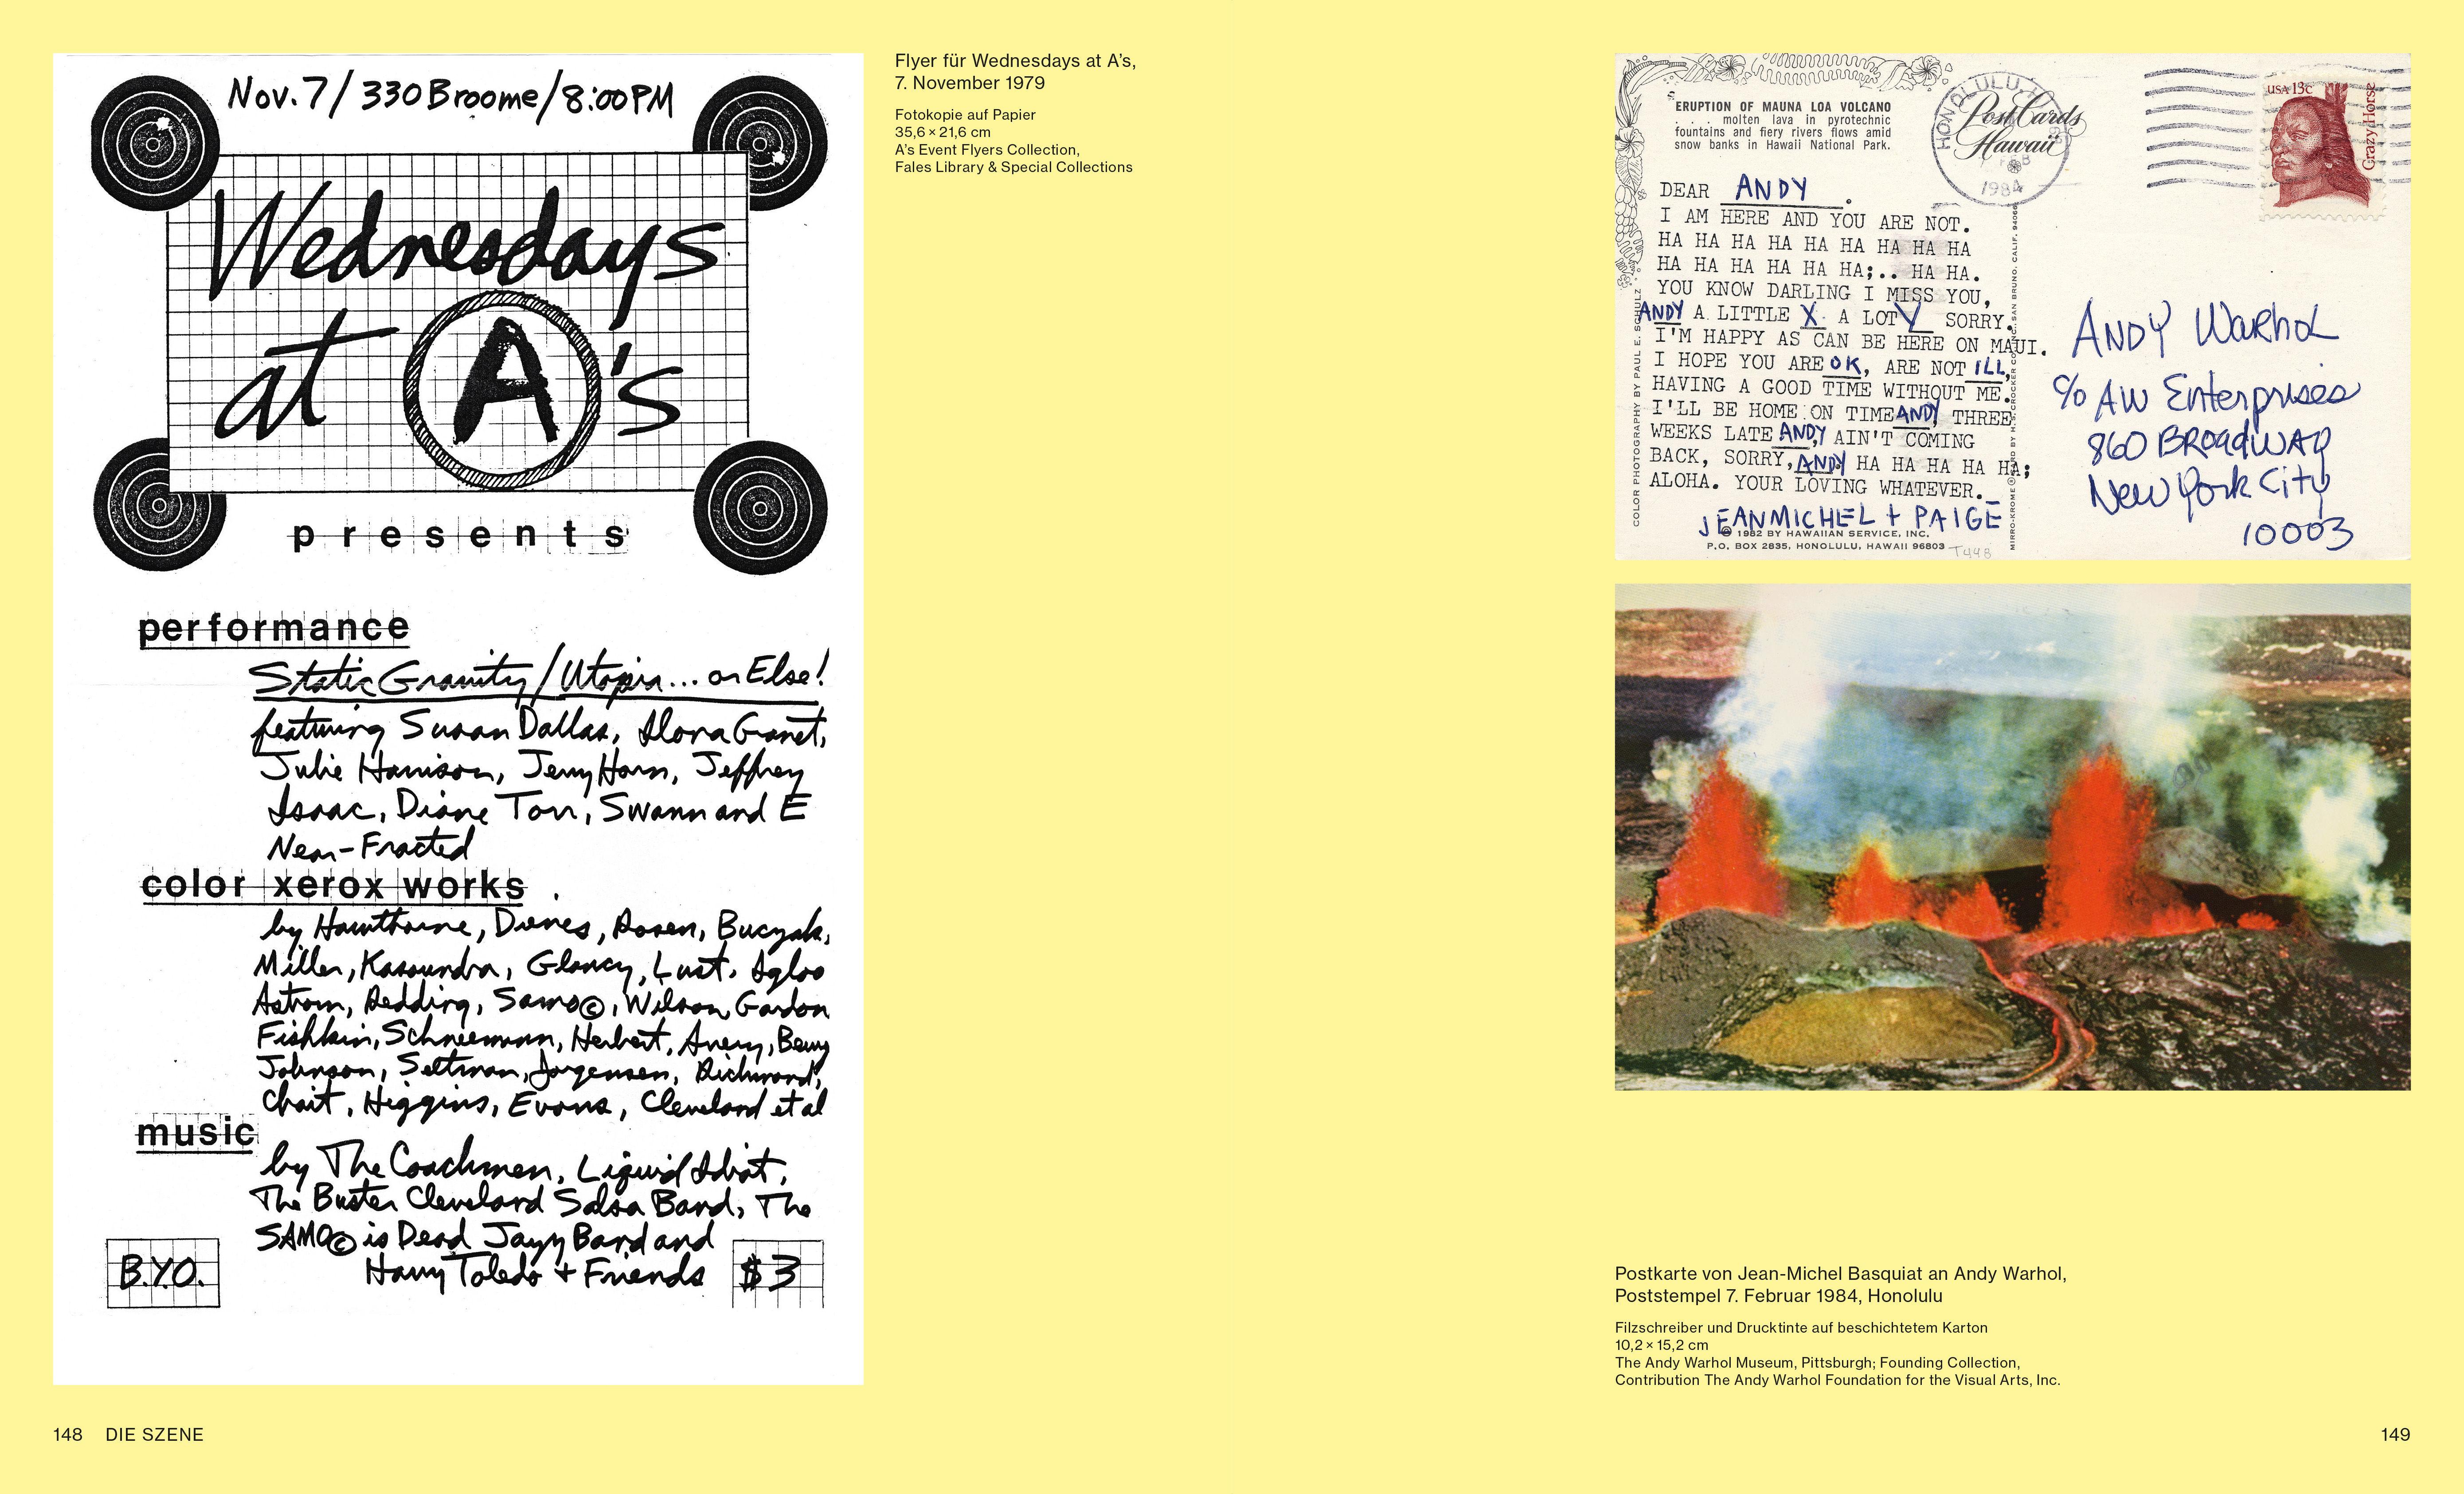 Nov. 7 / 330 Broome / 8:00 PM
Wednesdays
at A's
presents
performance
Static Gravity / Utopia... or Else!
featuring Susan Dallas, Ilona Granet,
Julie Harrison, Jerry Horn, Jeffrey
Isaac, Diane Torr, Swann and E
Near-Fracted
color xerox works
by Hawthorne, Dienes, Rosen, Bucyak,
Miller, Kasoundra, Glancy, Lust, Igloo
Astrom, Redding, Samo©, Wilson, Gordon
Fishkin, Schneemann, Herbert, Avery, Berry
Johnson, Seltman, Jorgensen, Richmond,
Chait, Higgins, Evans, Cleveland et al
music
by The Coachmen, Liquid Idiot,
The Buster Cleveland Salsa Band, The
SAMO© is Dead Jazz Band and
Harry Toledo + Friends
B.Y.O.
$3
Flyer für Wednesdays at A's,
7. November 1979
Fotokopie auf Papier
35,6 × 21,6 cm
A's Event Flyers Collection,
Fales Library & Special Collections
ERUPTION OF MAUNA LOA VOLCANO
. . . molten lava in pyrotechnic
fountains and fiery rivers flows amid
snow banks in Hawaii National Park.
Post Cards
Hawaii
HONOLULU, H
1984
USA 13c
Crazy Horse
DEAR ANDY.
I AM HERE AND YOU ARE NOT.
HA HA HA HA HA HA HA HA HA
HA HA HA HA HA HA;.. HA HA.
YOU KNOW DARLING I MISS YOU,
ANDY A LITTLE X A LOT Y SORRY.
I'M HAPPY AS CAN BE HERE ON MAUI.
I HOPE YOU ARE OK, ARE NOT ILL,
HAVING A GOOD TIME WITHOUT ME.
I'LL BE HOME ON TIME ANDY, THREE
WEEKS LATE ANDY, AIN'T COMING
BACK, SORRY, ANDY HA HA HA HA HA;
ALOHA. YOUR LOVING WHATEVER.
JEANMICHEL + PAIGE
© 1982 BY HAWAIIAN SERVICE, INC.
P.O. BOX 2835, HONOLULU, HAWAII 96803
T448
COLOR PHOTOGRAPHY BY PAUL E. SCHULZ
MIRRO-KROME ® CARD BY H. S. CROCKER CO., INC., SAN BRUNO, CALIF. 94066
ANDY WARHOL
c/o AW Enterprises
860 BROADWAY
New York City
10003
Postkarte von Jean-Michel Basquiat an Andy Warhol,
Poststempel 7. Februar 1984, Honolulu
Filzschreiber und Drucktinte auf beschichtetem Karton
10,2 × 15,2 cm
The Andy Warhol Museum, Pittsburgh; Founding Collection,
Contribution The Andy Warhol Foundation for the Visual Arts, Inc.
148 DIE SZENE
149